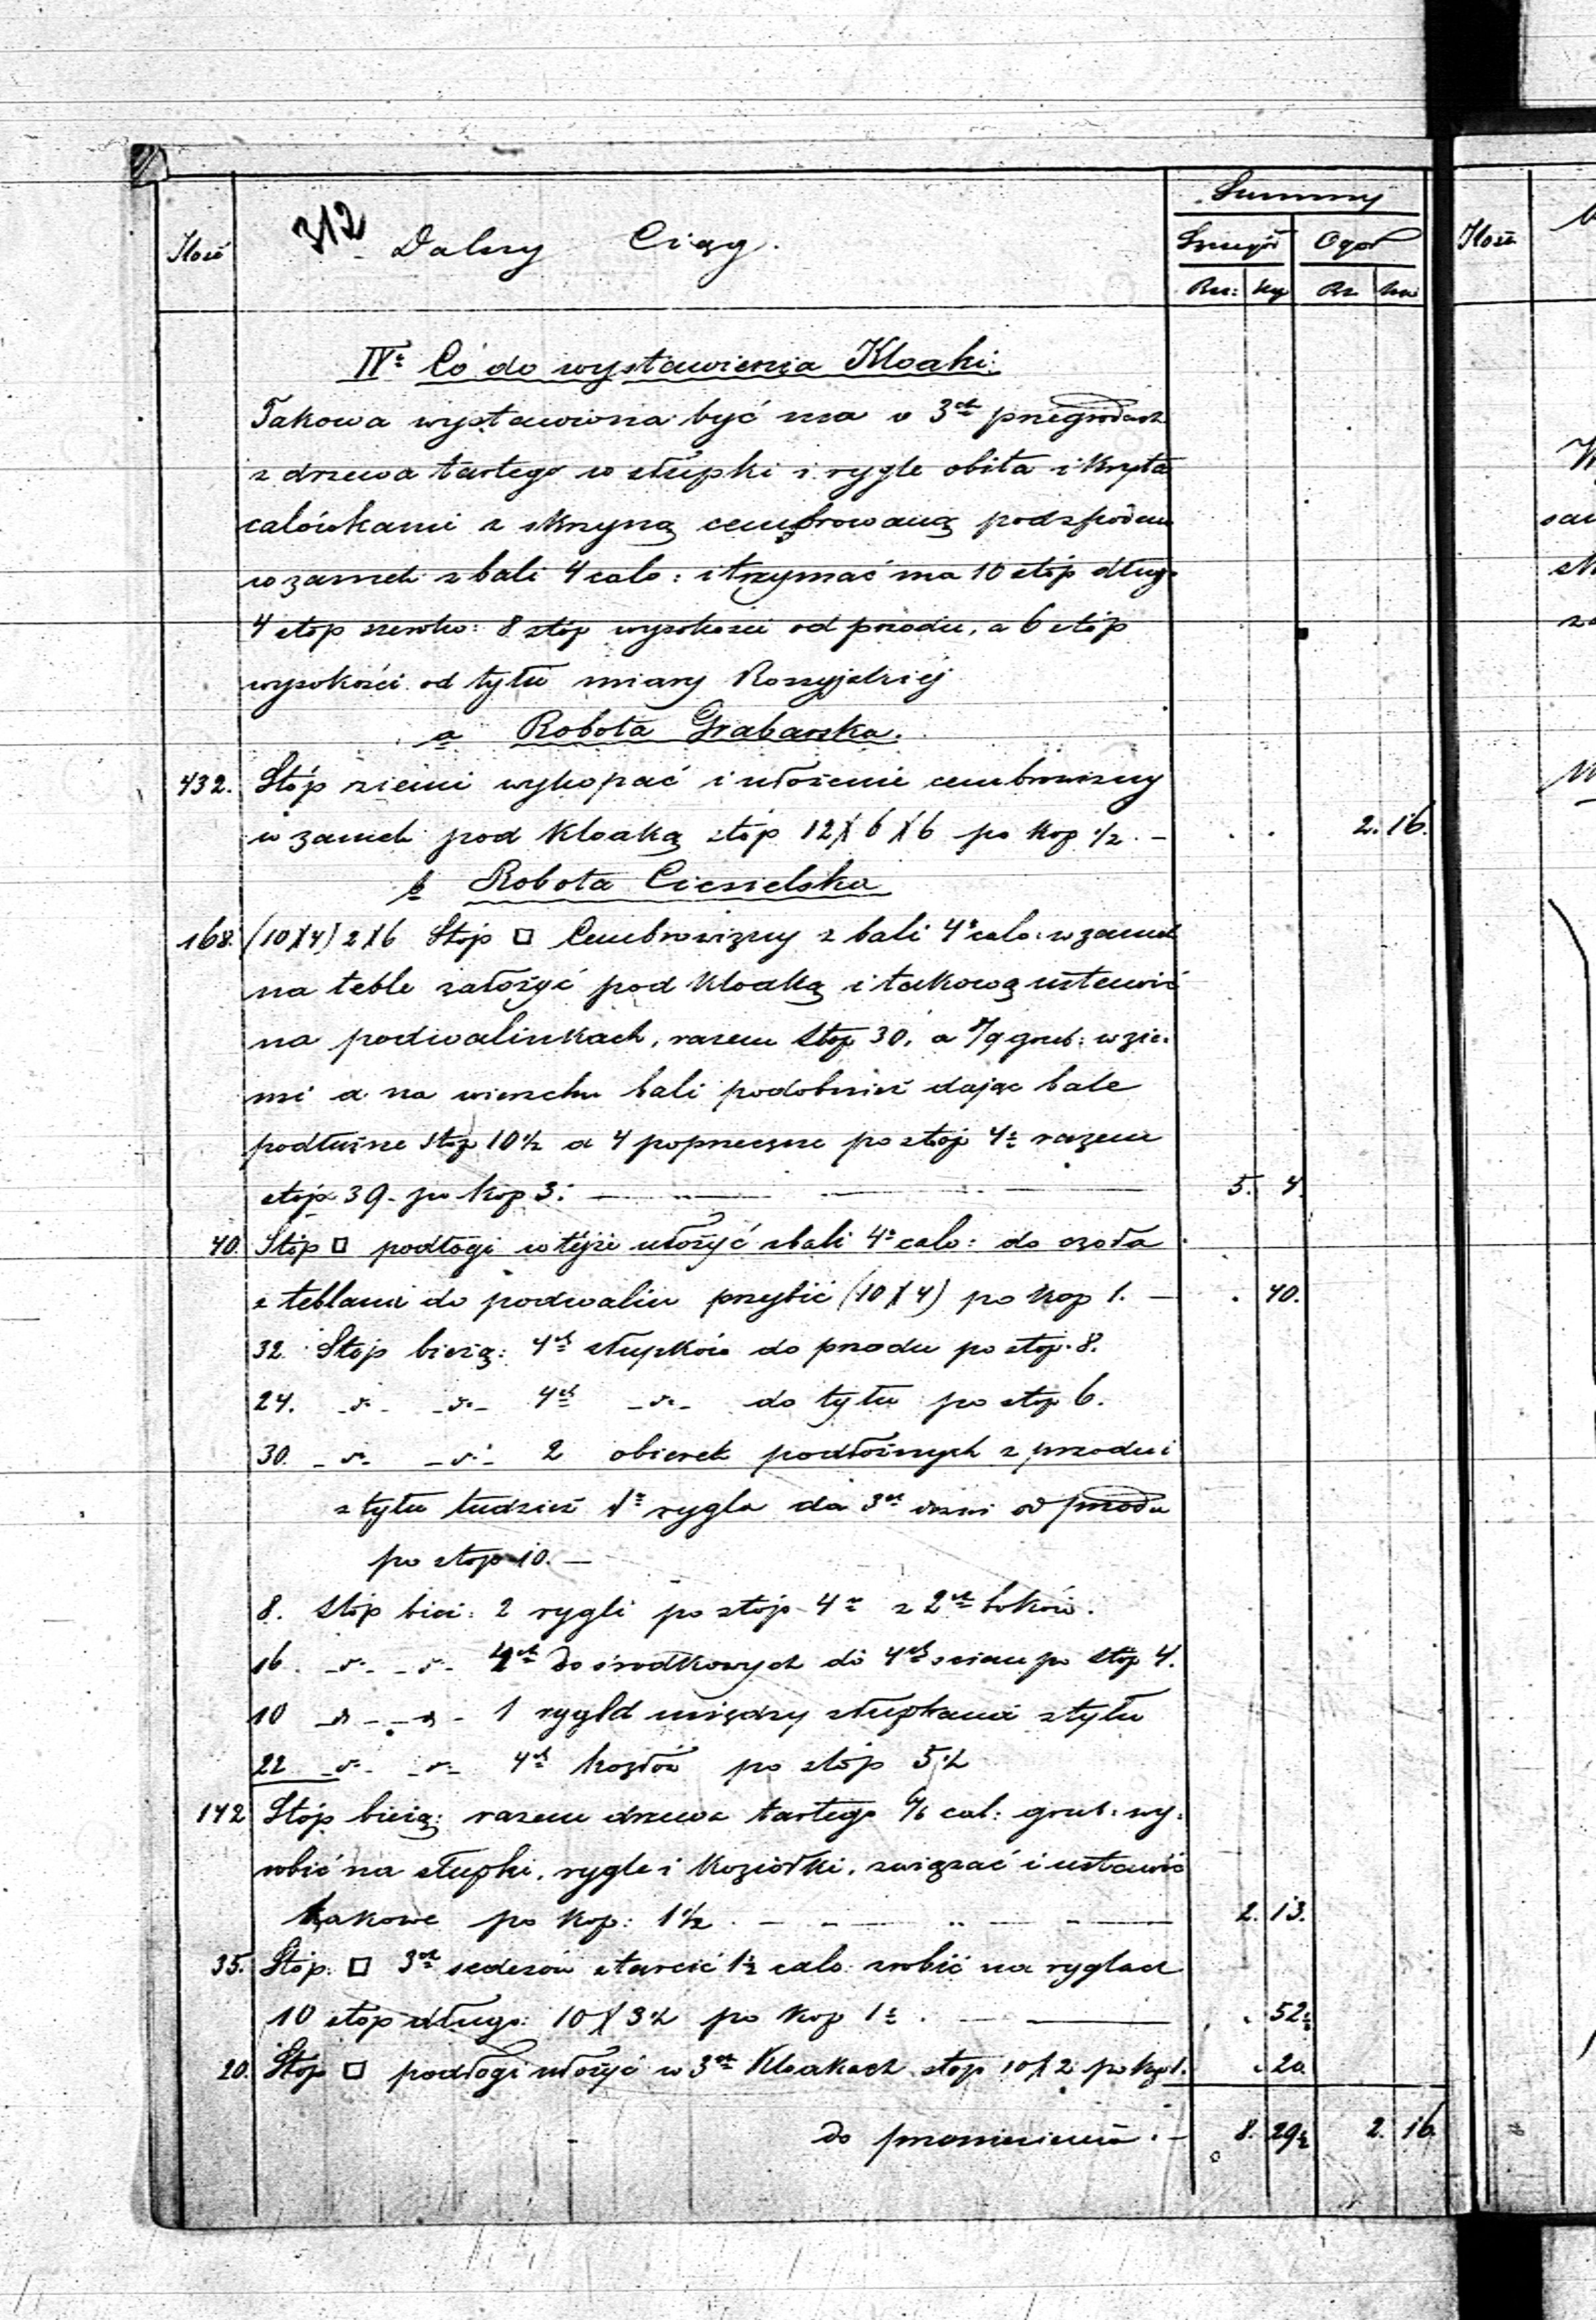 312
Dalszy Ciąg.
Ilość
Summy
Szczegół Ogół
Rsr: kop Rs ko
IV= Co do wystawienia Kloaki:
Takowa wystawiona być ma o 3ch przegrodach
z drzewa tartego w słupki i rygle obita i kryta
calówkami z skrzynią cembrowaną podspodem
w zamek z bali 4 calo: i trzymać ma 10 stóp dług:
4 stóp szerko: 8 stóp wysokości od przodu, a 6 stóp
wysokości od tyłu miary Rossyjskiéj
a Robota Grabarska.
432. Stóp ziemi wykopać i ułożenie cembrowizny
w zamek pod Kloaką stóp 12 X 6 X 6 po kop 1/2. — 2. 16.
b Robota Ciesielska
168. (10 X 4) 2 X 6 Stóp □ Cembrowizny z bali 4= calo: w zamek
na teble założyć pod kloaką i takową ustawić
na podwalinkach, razem stóp 30, a 7/9 grub: w zie:
mi a na wierzchu bali podobnież dając bale
podłużne stóp 10 1/2 a 4 poprzeczne po stóp 4= razem
stóp 39. po kop 3: — 5. 4.
40. Stóp □ podłogi w téjże ułożyć z bali 4= calo: do czoła
z teblami do podwalin przybić (10 X 4) po kop 1. — . 40.
32. Stóp bieżą: 4ch słupków do przodu po stóp. 8.
24. -„- -„- 4ch -„- do tyłu po stóp 6.
30. -„- -„- 2 obierek podłóżnych z przodu i
z tyłu tudzież 1= rygla da 3ch drzwi od przodu
po stóp 10. —
8. Stóp bież: 2 rygli po stóp 4= z 2ch boków.
16. -„- -„- 4ch do środkowych do 4ch ścian po stóp 4.
10 -„- -„- 1 rygld między słupkami z tyłu
22 -„- -„- 4ch kozłów po stóp 5 1/2
142 Stóp bieżą: razem drzewa tartego 6/6 cal: grub: wy:
robić na słupki, rygle i koziołki, związać i ustawić
takowe po kop: 1 1/2 . — 2. 13.
35. Stóp: □ 3ch sedesów starcić 1 1/2 calo: zrobić na ryglach
10 stóp długo: 10 X 3 1/2 po kop 1 1/2 . — . 52 1/2
20. Stóp □ podłogi ułożyć w 3ch Kloakach stóp 10 X 2 po kop 1. . 20.
do przeniesienia . — 8. 29 1/2 2. 16.
Ilość